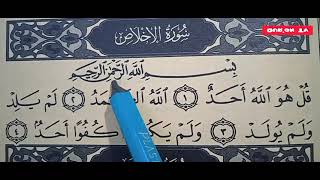 سُورَةُ الْإِخْلَاصِ
بِسْمِ اللَّهِ الرَّحْمَٰنِ الرَّحِيمِ
قُلْ هُوَ اللَّهُ أَحَدٌ ١ اللَّهُ ٢ لَمْ يَلِدْ
وَلَمْ يُولَدْ ٣ وَلَمْ كُفُوًا أَحَدٌ ٤